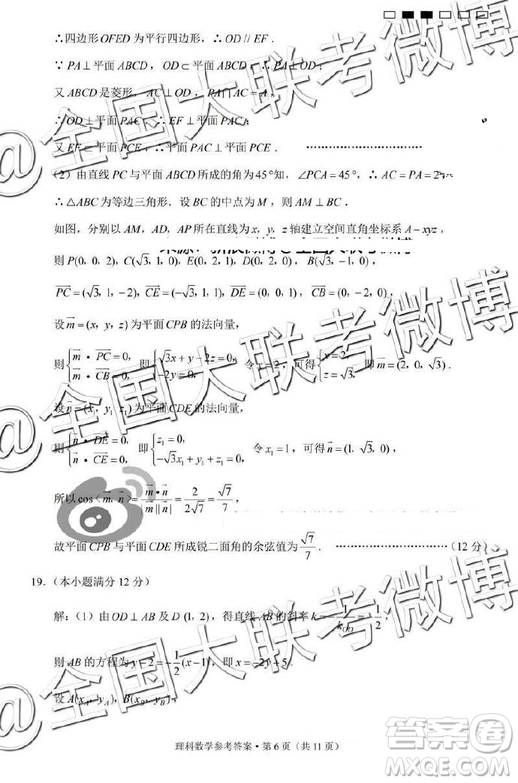 ∴四边形OFED为平行四边形，∴OD∥EF．
∵PA⊥平面ABCD，OD⊂平面ABCD，∴PA⊥OD．
又ABCD是菱形，AC⊥OD，PA∩AC=A，
∴OD⊥平面PAC，∴EF⊥平面PAC，
又EF⊂平面PCE，∴平面PAC⊥平面PCE．
（2）由直线PC与平面ABCD所成的角为45°知，∠PCA=45°，∴AC=PA=2
∴△ABC为等边三角形．设BC的中点为M，则AM⊥BC．
如图，分别以AM，AD，AP所在直线为x，y，z轴建立空间直角坐标系A-xyz，
则P(0，0，2)，C(√3，1，0)，E(0，2，1)，D(0，2，0)，B(√3，-1，0)，
PC=(√3，1，-2)，CE=(-√3，1，1)，DE=(0，0，1)，CB=(0，-2，0)．
设m=(x，y，z)为平面CPB的法向量，
则{m·PC=0，m·CB=0，即{√3x+y-2z=0，-2y=0，令x=2，可得{x=2，z=√3，即m=(2，0，√3)．
设n=(x₁，y₁，z₁)为平面CDE的法向量，
则{n·DE=0，n·CE=0，即{z₁=0，-√3x₁+y₁+z₁=0，令x₁=1，可得n=(1，√3，0)，
所以cos<m，n>=m·n/|m||n|=2/2√7=√7/7
故平面CPB与平面CDE所成锐二面角的余弦值为√7/7．（12分）
19．（本小题满分12分）
解：（1）由OD⊥AB及D(1，2)，得直线AB的斜率k=-1/k_OD=-1/2，
则AB的方程为y-2=-1/2(x-1)，即x=-2y+5．
设A(x_A，y_A)，B(x_B，y_B)，
理科数学参考答案·第6页（共11页）
@全国大联考微博
@全国大联考微博
@全国大联考微博
答案圈
MXQE.COM